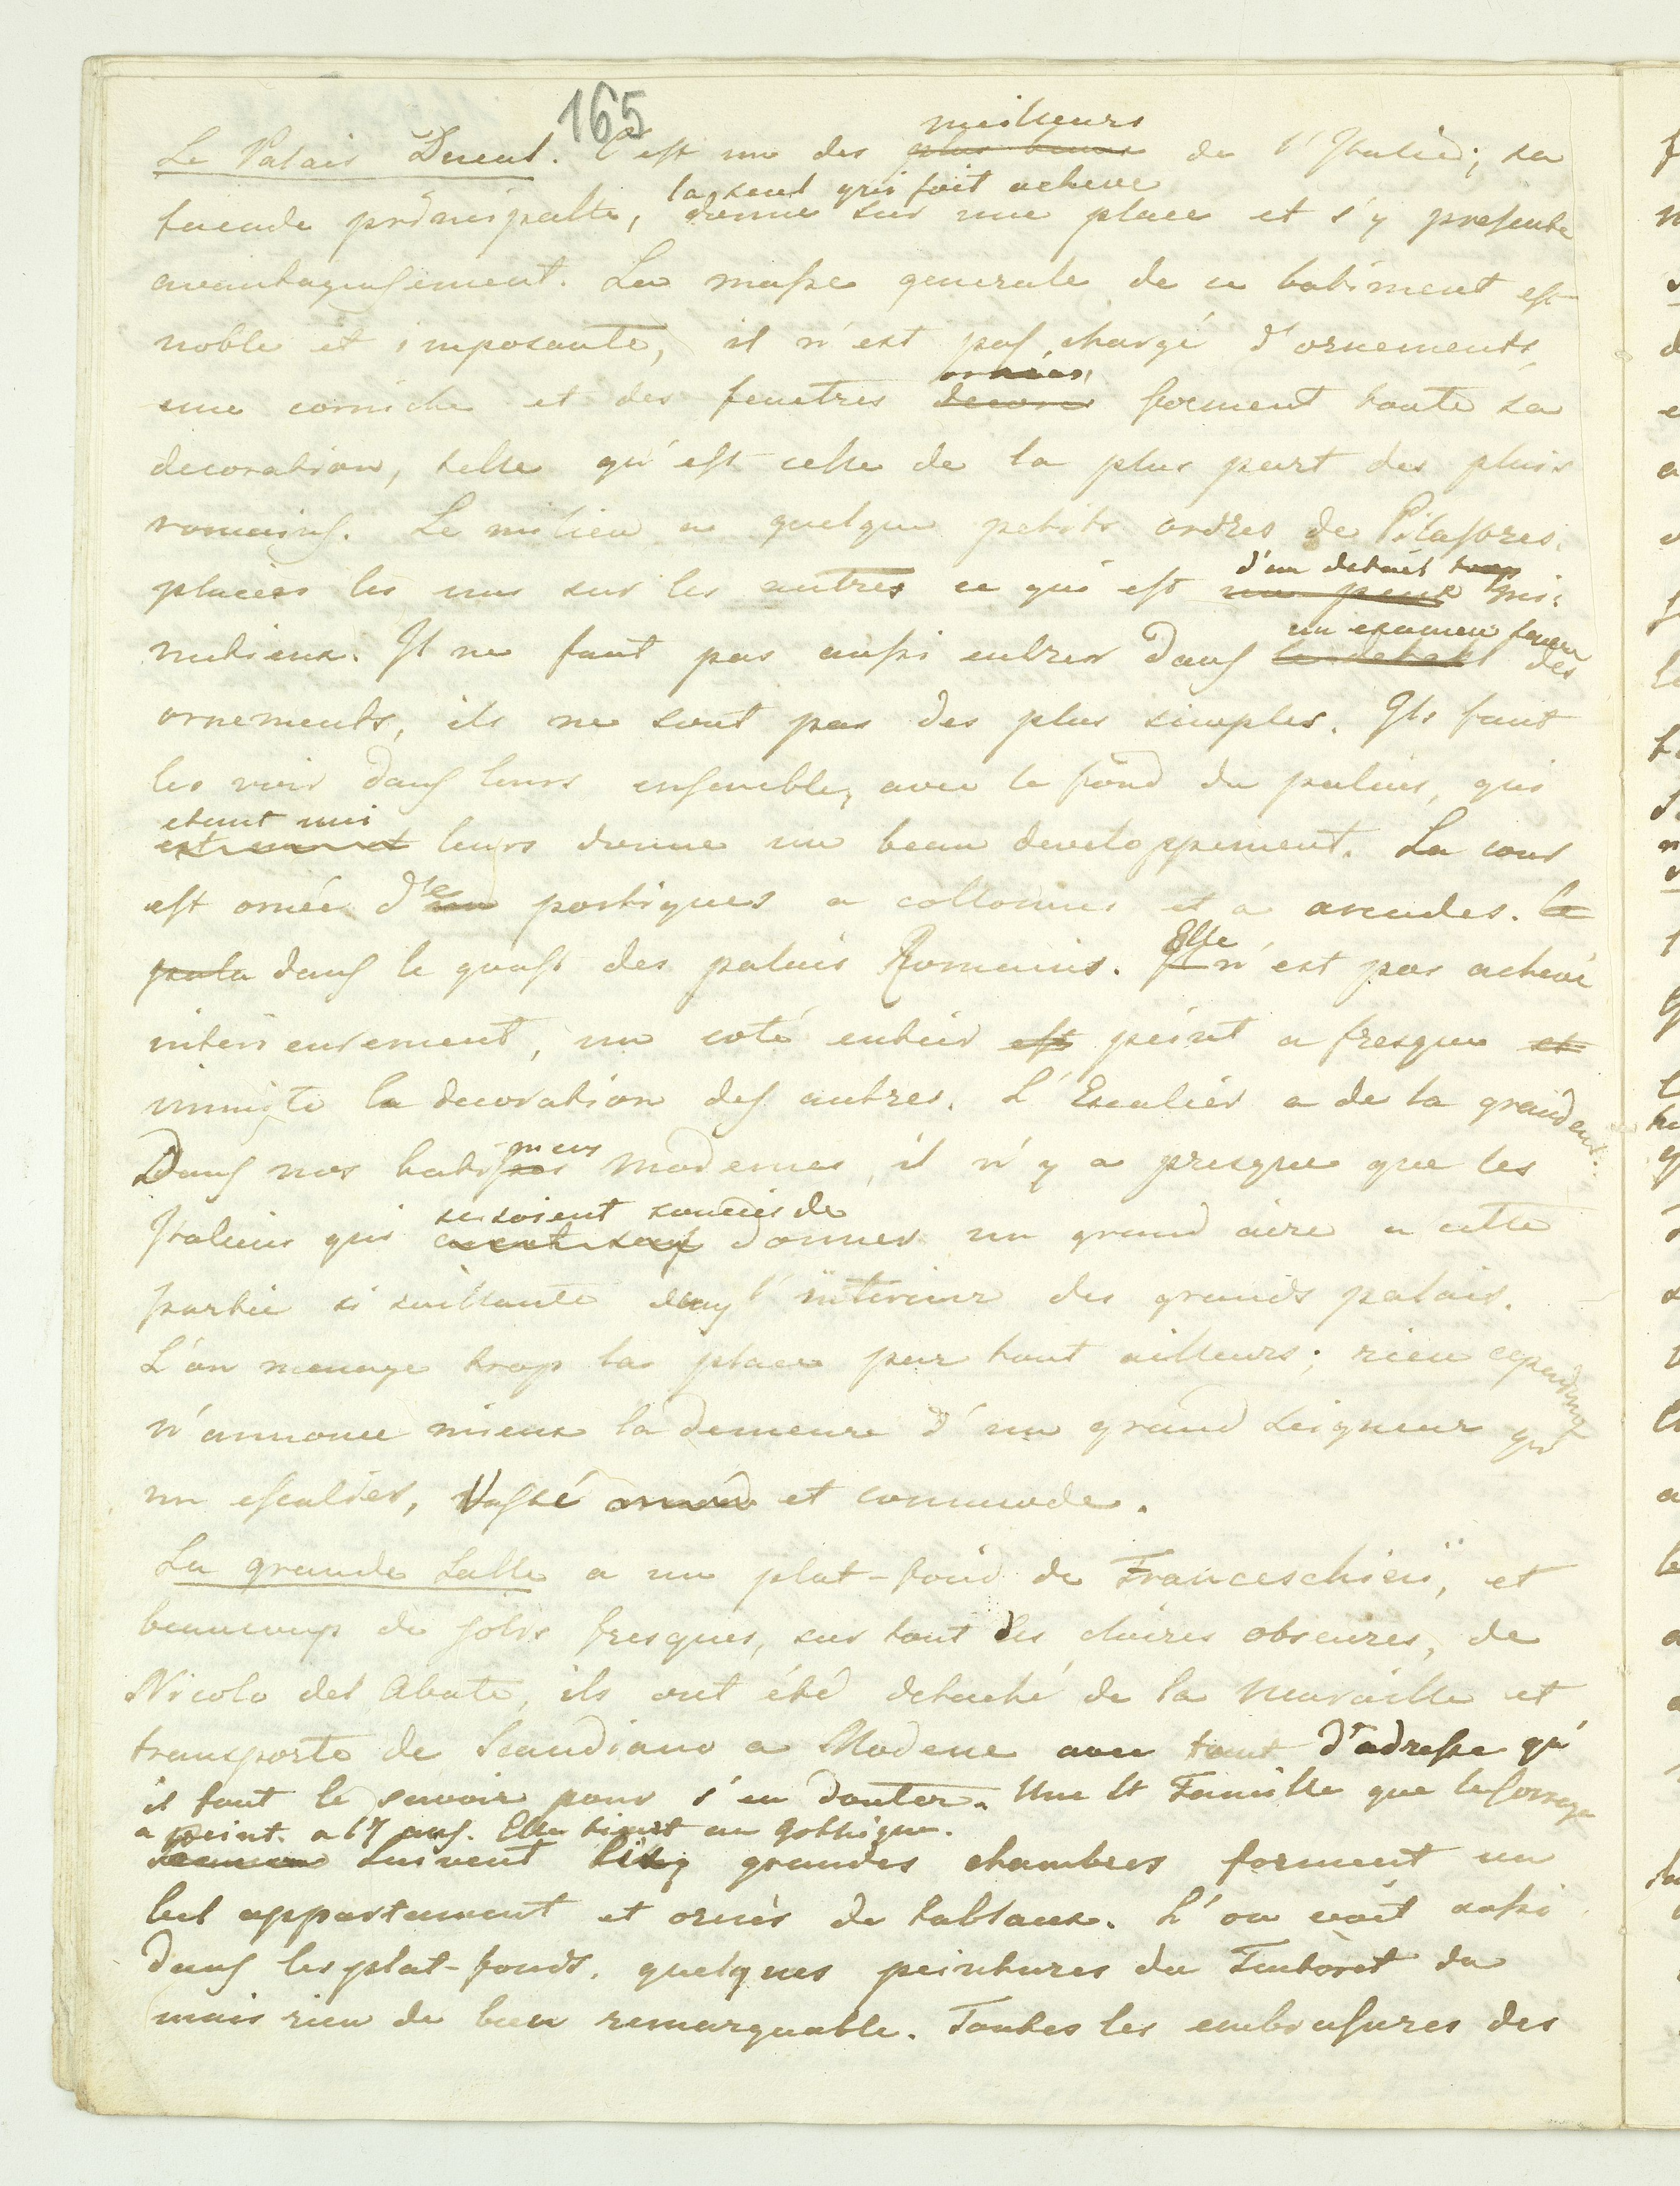 165
meilleurs
Le Palais Ducal. C'est un des plus beaux de l'Italie; sa
la seul qui soit acheve
facade principalle, donne sur une place et s'y presente
avantageusement. La masse generale de ce batiment est
noble et imposante, il n'est pas chargé d'ornements,
ornées,
une corniche et des fenetres decores forment toute sa
decoration, telle qu'est celle de la plus part des plais
romains. Le milieu a quelque petits ordres de Pilastres,
d'un detail trop
placées les uns sur les autres ce qui est un peux mi:
un examen
nutieux. Il ne faut pas aussi entrer dans le detail des
ornements, ils ne sont pas des plus simples. Ils faut
les voir dans leurs ensemble, avec le fond du palais, qui
etant uni
leurs donne un beau developpement. La cour
est ornée de portiques a collonnes et a arcades. le
pala dans le goust des palais Romains. Elle n'est pas achevé
interieurement, un coté entier est peint a fresque et
immite la decoration des autres. L'Escalier a de la grandeur.
mens
Dans nos bati modernes, il n'y a presque que les
se soient souciés de
Italiens qui donner un grand aire a cette
partie si saillante dans l'interieur des grands palais.
L'on menage trop la place par tout ailleurs; rien cependant
n'annonce mieux la demeure d'un grand seigneur qu
un escalier, Vaste et commode.
La grande Salle a un plat-fond de Franceschini, et
beaucoup de jolis fresques, sur tout des claires obscures, de
Nicolo del Abate, ils ont été detaché de la muraille et
transporte de Scandiano a Modene avec tant d'adresse qu'
il faut le savoir pour s'en douter. Une St Famille que le Correge
a peint a 17 ans. Elle tient au Gothique.
suivent cinq grandes chambres forment un
bel appartement et ornés de tablaux. L'on voit aussi
dans les plat-fonds, quelques peintures du Tintoret du
mais rien de bien remarquable. Toutes les embrasures des